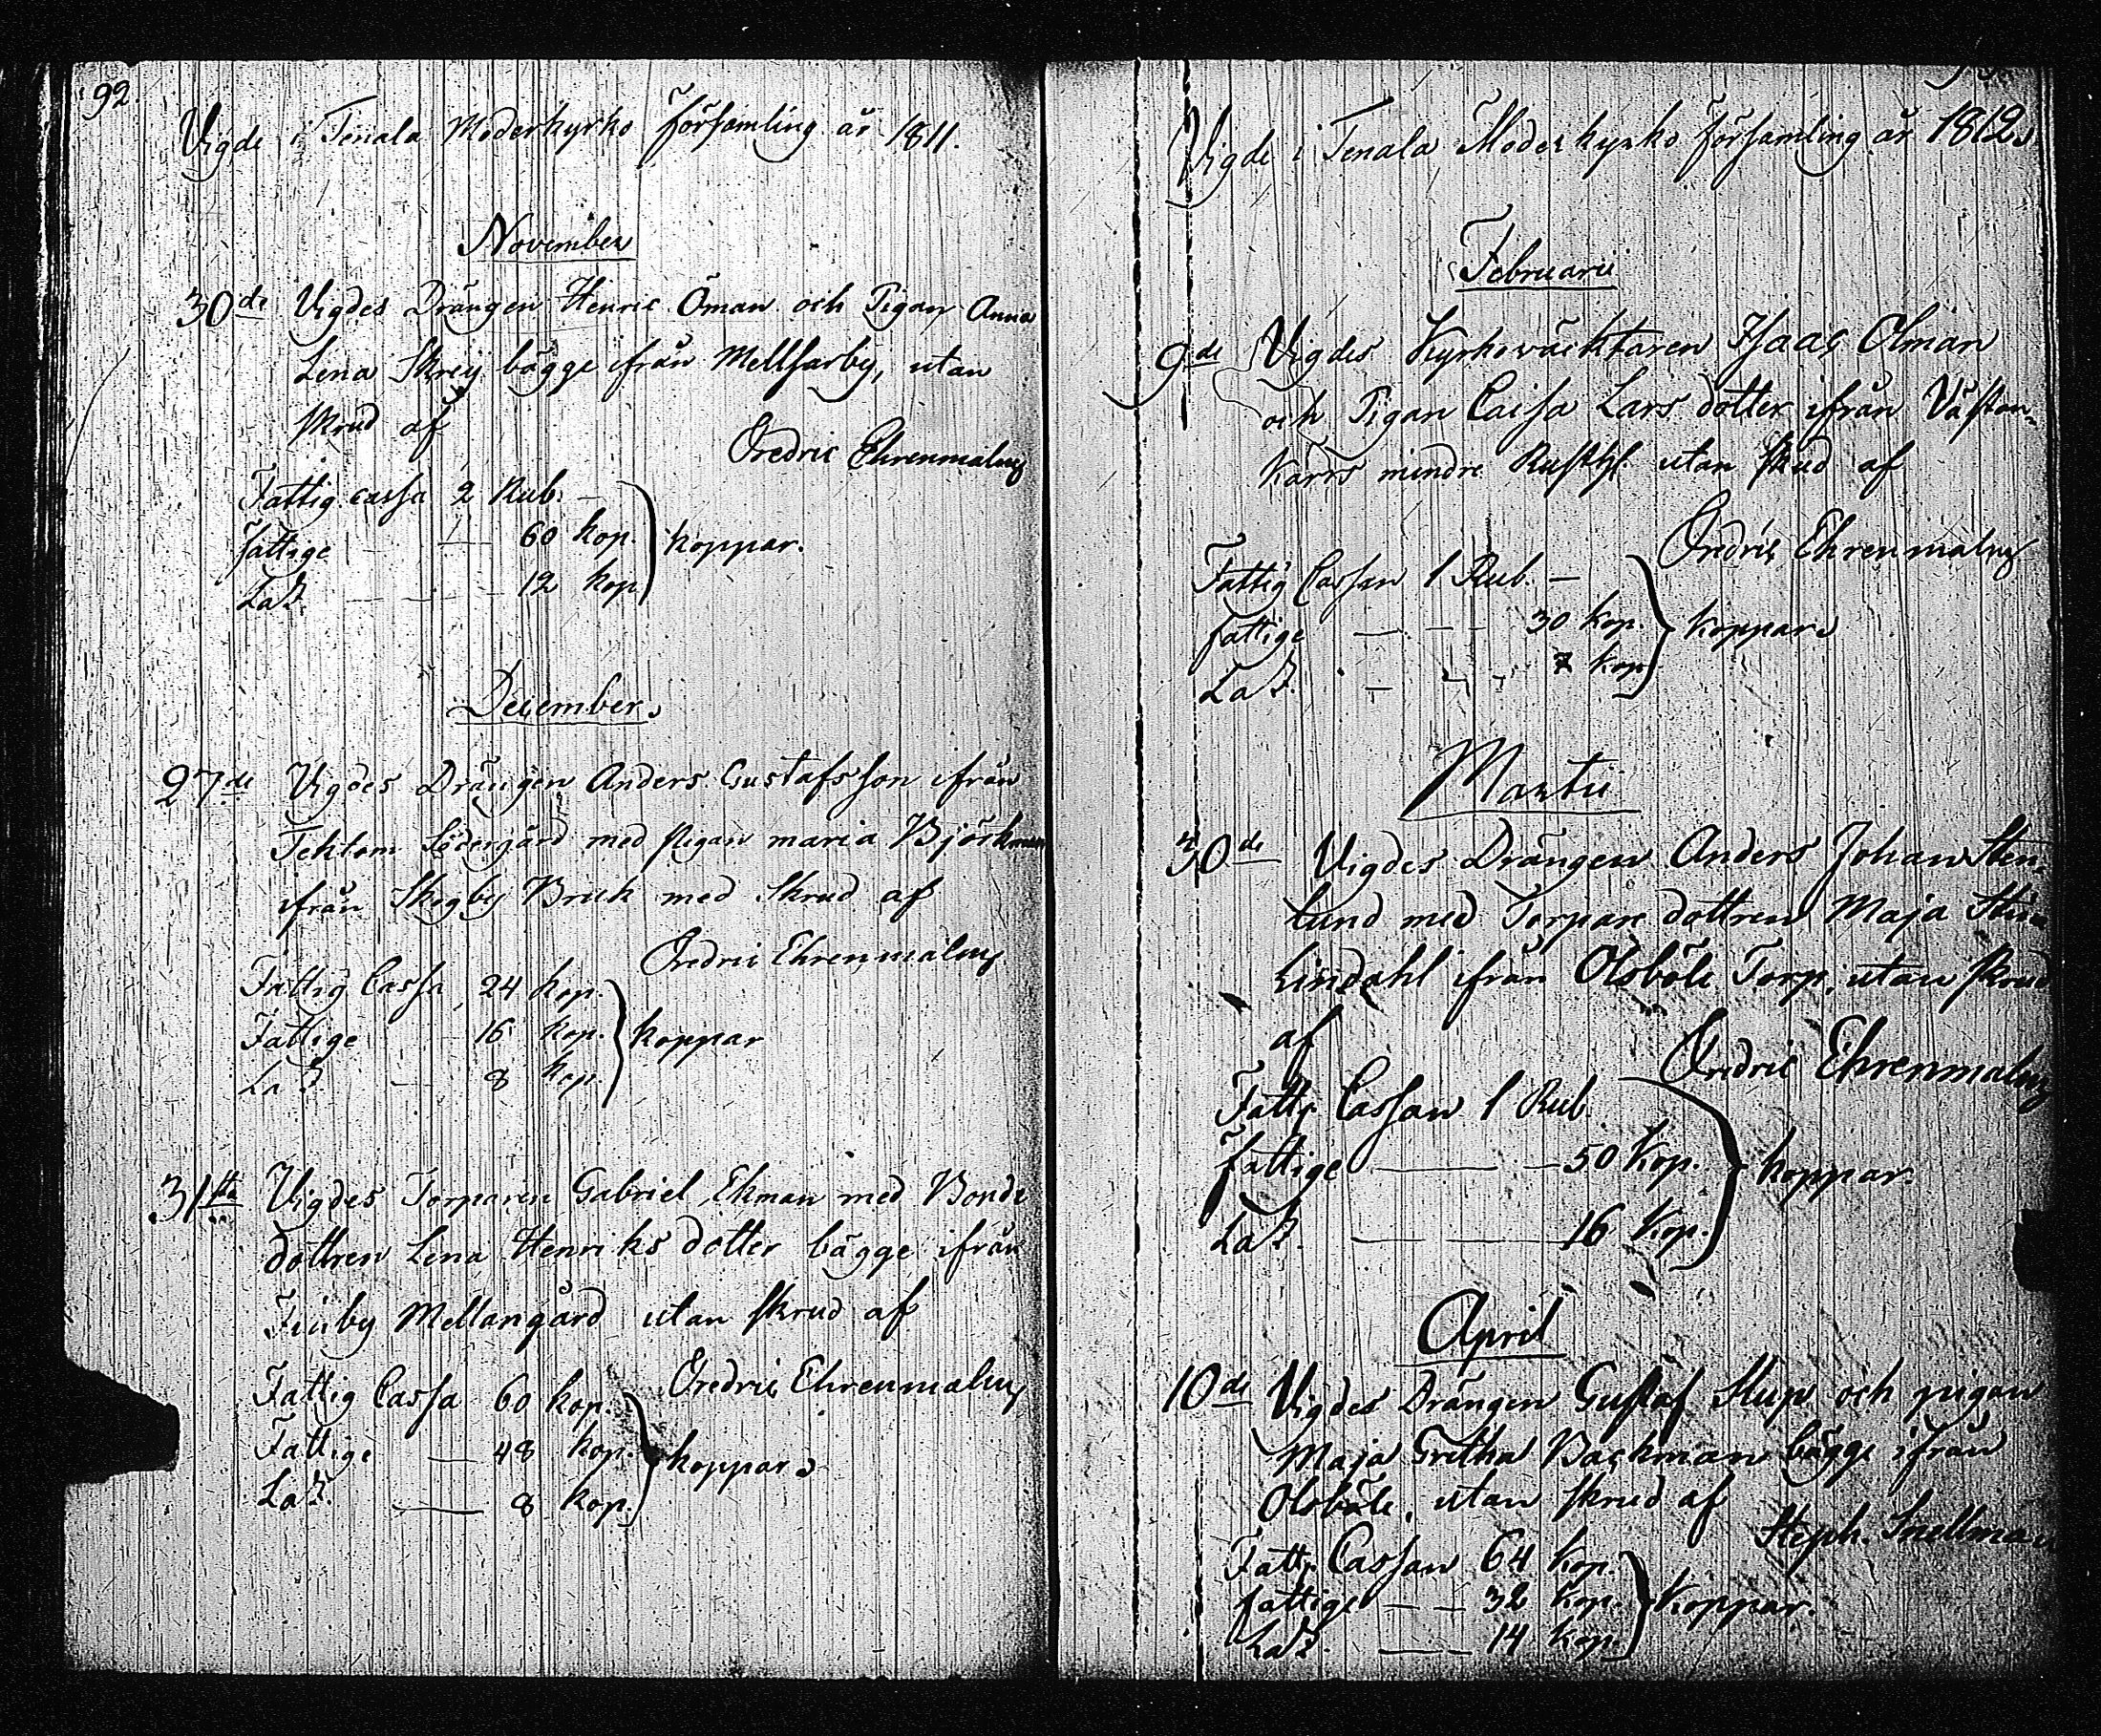 92.
Vigde i Tenala Moderkyrko församling år 1811.
November
30de Vigdes Drängen Henric Öman och Pigan Anna
Lena Skrey bägge ifrån Mellsarby, utan
skrud af
Fredric Ehrenmalm
Fattig cassa 2 Rub. —
fattige — 60 kop.
Laz. — 12 kop.
koppar.
December.
27de Vigdes Drängen Anders Gustafsson ifrån
Tehlom Södergård med pigan maria Björkman
ifrån Skogby Bruk med Skrud af
Fredric Ehrenmalm
Fattig Cassa 24 kop.
Fattige 16 kop.
Laz. — 8 kop.
koppar
31sta Vigdes Torparen Gabriel Ekman med Bonde
dottren Lena Henriks dotter bägge ifrån
Finby Mellangård utan skrud af
Fredric Ehrenmalm
Fattig Cassa 60 kop.
Fattige — 48 kop.
Laz. — 8 kop.
koppar.
Vigde i Tenala Moderkyrko församling år 1812.
Februarii
9de Vigdes Kyrkoväcktaren Isaac Olman
och Pigan Caisa Lars dotter ifrån Västan-
kärrs mindre Rusthl. utan skrud af
Fredric Ehrenmalm
Fattig Cassan 1 Rub. —
fattige — — 30 kop.
Laz. — 7 kop.
koppar.
Martii
30de Vigdes Drängen Anders Johan Sten-
lund med Torpare dottren Maja Stina
Lindahl ifrån Olsböle Torp, utan skrud
af
Fredric Ehrenmalm
Fattg Cassan 1 Rub
fattige — 50 Kop.
Laz. — 16 Kop.
koppar.
April
10de Vigdes Drängen Gustaf Skup och pigan
Maja Gretha Backman bägge ifrån
Olsböle, utan skrud af
Steph. Snellman
Fattg Cassan 64 kop.
fattige — — 32 kop.
Laz — 14 kop.
Koppar.